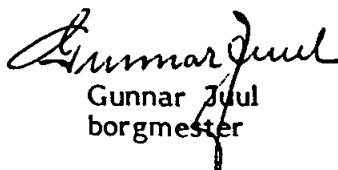 Gunnar Juul
Gunnar Juul
borgmester